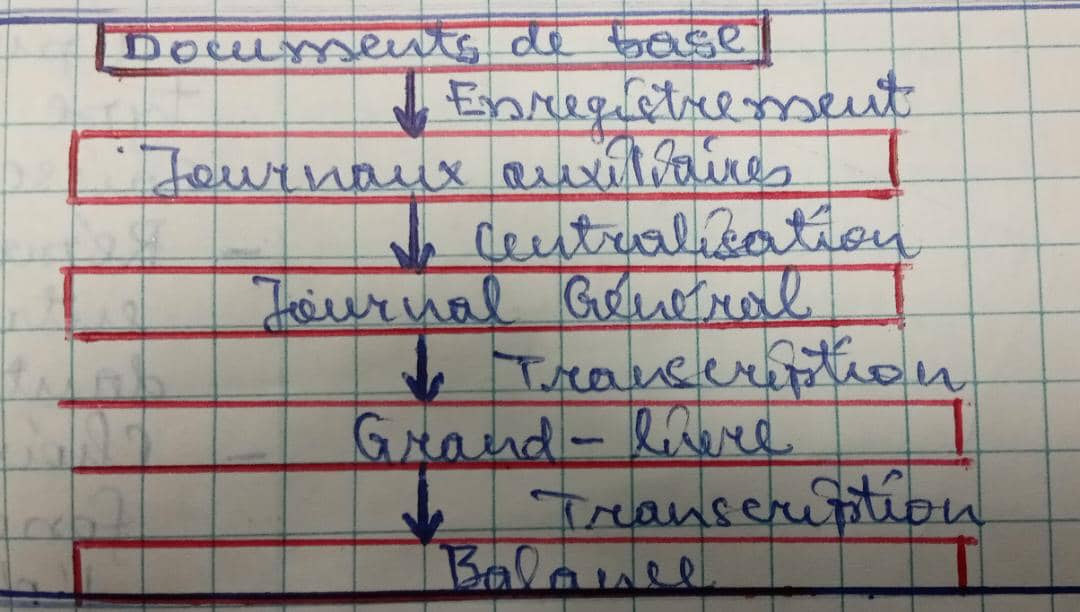 Documents de base
Enregistrement
Journaux auxilliaires
Centralisation
Journal Général
Transcription
Grand-livre
Transcription
Balance